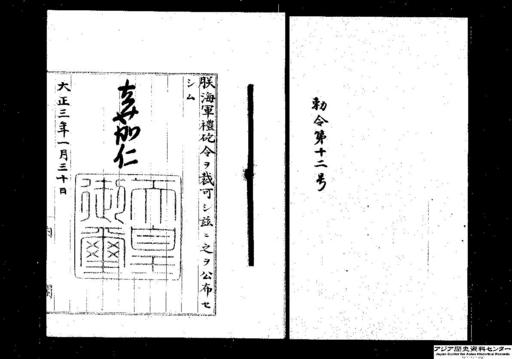 勅令第十二号
朕海軍禮砲令ヲ裁可シ茲ニ之ヲ公布セ
シム
嘉仁
天皇
御璽
大正三年一月三十日
内閣
アジア歴史資料センター
Japan Center for Asian Historical Records